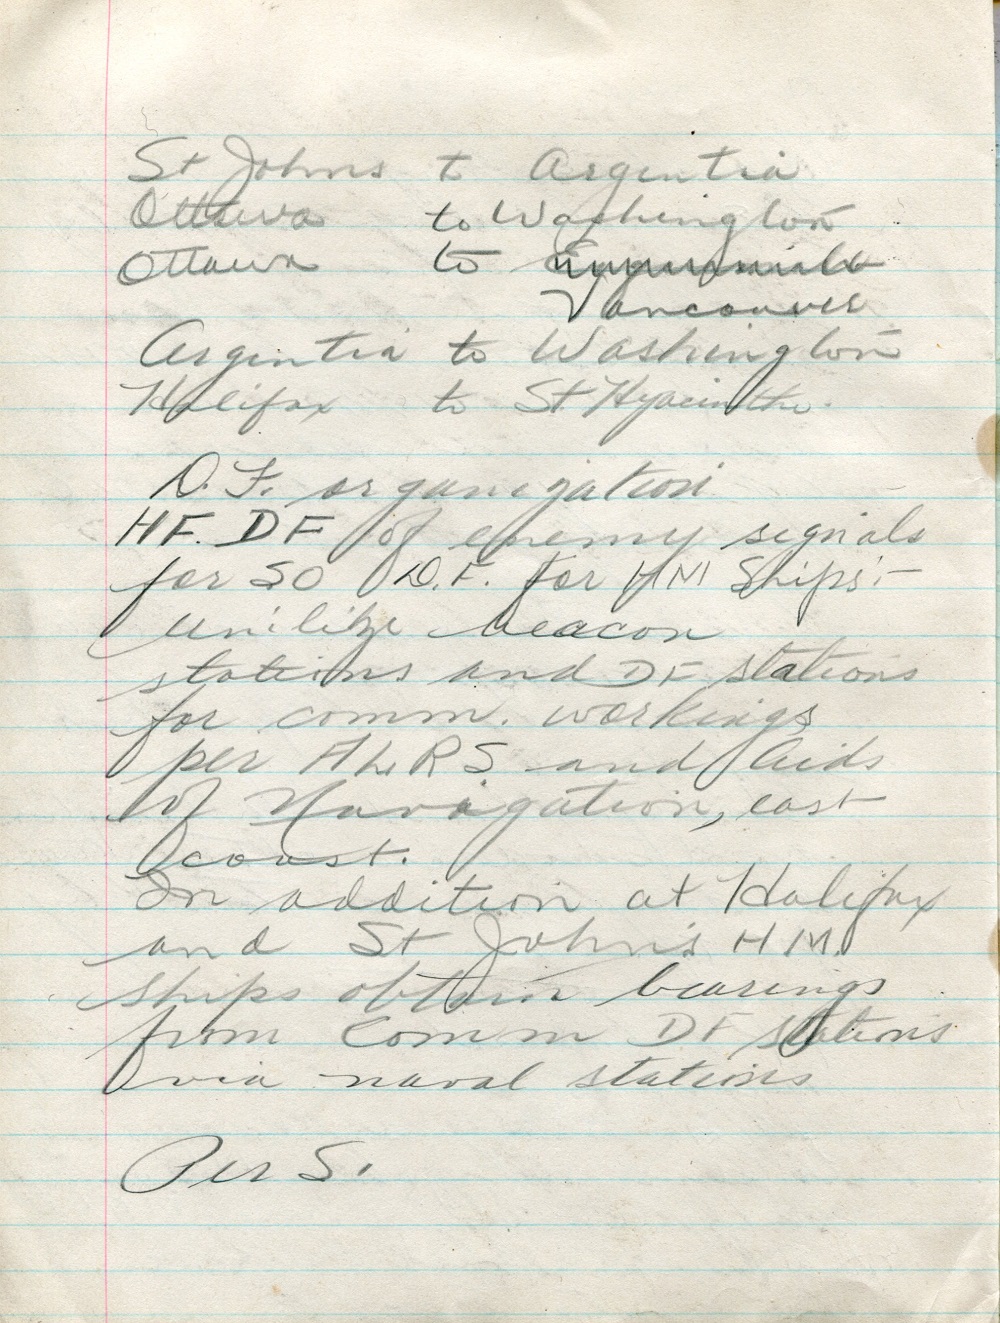 St Johns to Argentia
Ottawa to Washington
Ottawa to
Vancouver
Argentia to Washington
Halifax to St Hyacinthe.
D.F. organization
HF. DF of enemy signals
for SO D.F. for HM Ships:-
beacon
stations and DF stations
for comm. workings
per ALRS and Aids
of Navigation, east
coast.
In addition at Halifax
and St John's HM.
ships obtain bearings
from Comm DF stations
via naval stations
Per S.